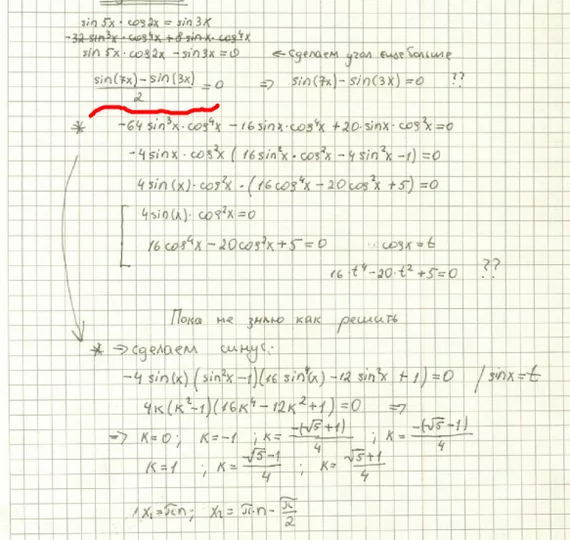 sin 5x · cos2x = sin 3x
-32 sin³x · cos⁴x + 8 sinx · cos⁴x
sin 5x · cos2x - sin3x = 0 ← Сделаем угол еще больше
(sin(7x) - sin(3x))/2 = 0 ⇒ sin(7x) - sin(3x) = 0 ??
* -64 sin³x · cos⁴x - 16 sinx · cos⁴x + 20 · sinx · cos²x = 0
-4 sinx · cos²x (16 sin²x · cos²x - 4 sin²x - 1) = 0
4 sin(x) · cos²x · (16 cos⁴x - 20 cos²x + 5) = 0
4 sin(x) · cos²x = 0
16 cos⁴x - 20 cos²x + 5 = 0 cosx = t
16 · t⁴ - 20 · t² + 5 = 0 ??
Пока не знаю как решить
* → сделаем синус:
-4 sin(x) (sin²x - 1)(16 sin⁴(x) - 12 sin²x + 1) = 0 / sinx = t
4k(k² - 1)(16k⁴ - 12k² + 1) = 0 ⇒
⇒ k = 0; k = -1; k = -(√5+1)/4; k = -(√5-1)/4
k = 1; k = (√5-1)/4; k = (√5+1)/4
x₁ = πn; x₂ = πn - π/2